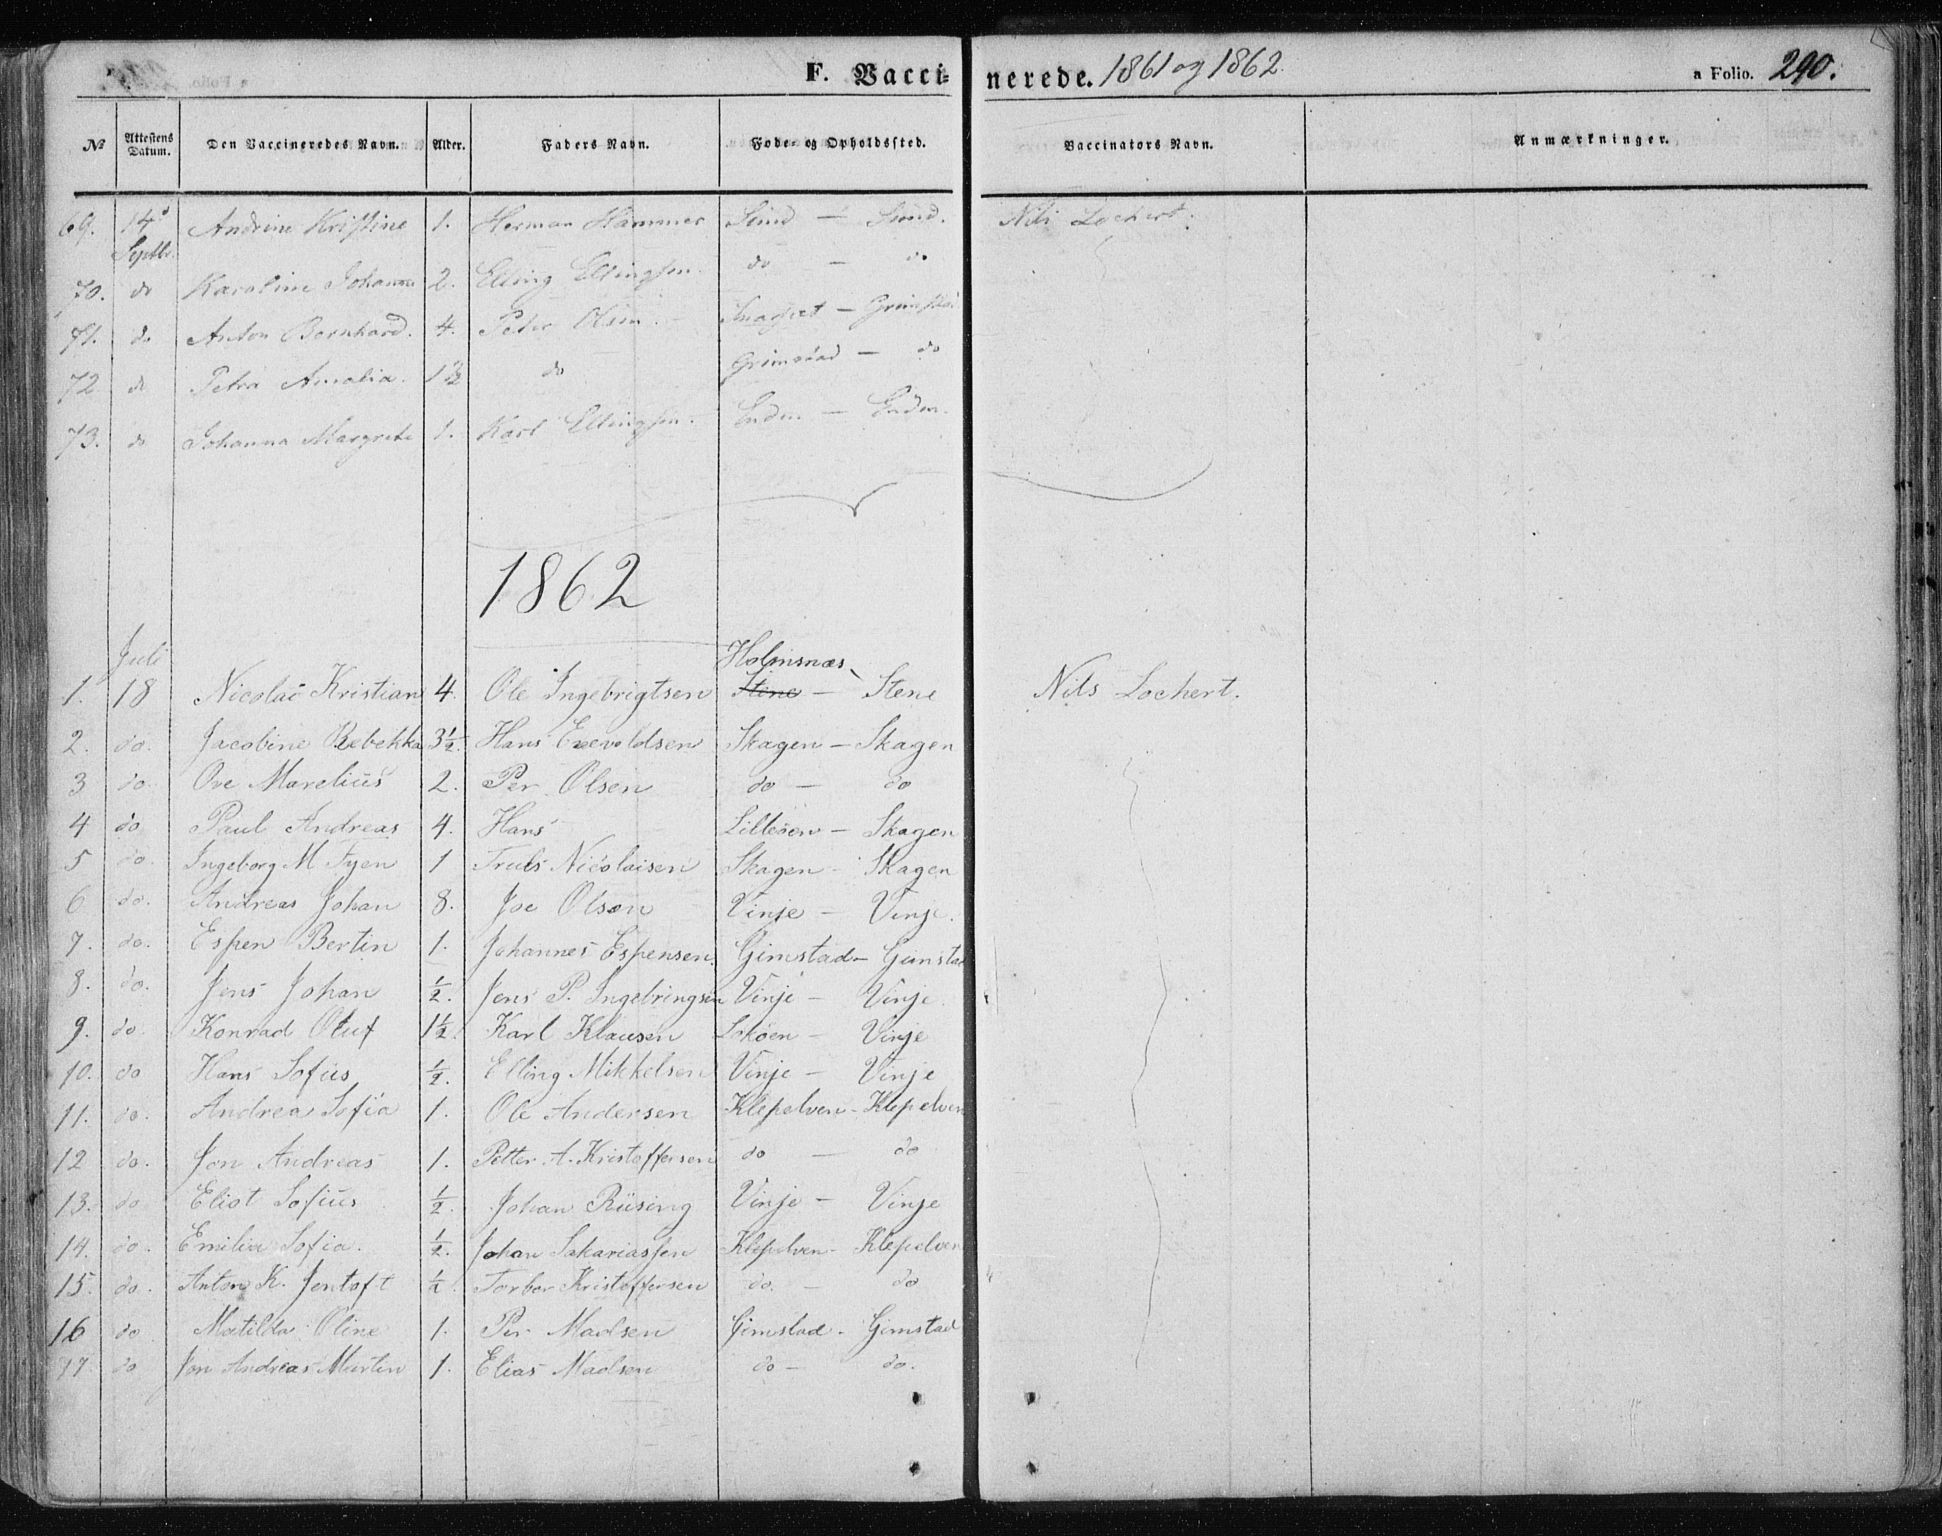 F. Vaccinerede. 1861 og 1862. a Folio. 290.
№ Attestens Datum. Den Vaccineredes Navn. Alder. Faders Navn. Føde- og Opholdssted. Vaccinators Navn. Anmærkninger.
69. 14d Septbr. Andrine Kristine 1. Herman Hammer Sund — Sund. Nils Lochert.
70. do Karoline Johanna 2. Elling Ellingsen. do — do
71. do Anton Bernhard. 4. Peter Olsen.
72 do Petra Amalia. 1½ do Grimstad — do
73. do Johanna Margrete 1. Karl Ellingsen.
1862
Juli Holmsnæs
1. 18 Nicolai Kristian 4. Ole Ingebrigtsen Stene — Stene Nils Lochert.
2. do. Jacobine Rebekka 3½. Hans Enevoldsen Skagen — Skagen
3 do. Ove Marelius 2. Per Olsen do — do
4 do Paul Andreas 4. Hans Lilleøen — Skagen
5 do. Ingeborg M 1 Truls Nicolaisen Skagen - Skagen
6 do. Andreas Johan 8. Joe Olsen Vinje — Vinje.
7. do. Espen Bertin 1. Johannes Espensen. Gimstad — Gimstad
8. do. Jens Johan ½. Jens P. Ingebringsen Vinje — Vinje.
9. do. Konrad Oluf 1½. Karl Klausen Vinje
10. do Hans Sofus ½. Elling Mikkelsen Vinje — Vinje
11. do. Andrea Sofia 1. Ole Andersen Klepelven - Klepelven
12 do. Jon Andreas 1. Petter A. Kristoffersen do — do
13. do Eliot Sofius ½. Johan Rüsing Vinje — Vinje
14. do. Emilia Sofia. ½. Johan Sakariassen Klepelven - Klepelven
15. do. Anton K. Jentoft ½. Torber Kristoffersen do. — do
16 do Matilda Oline 1. Per Madsen Gimstad - Gimstad
17. do Jon Andreas Martin 1. Elias Madsen do — do.